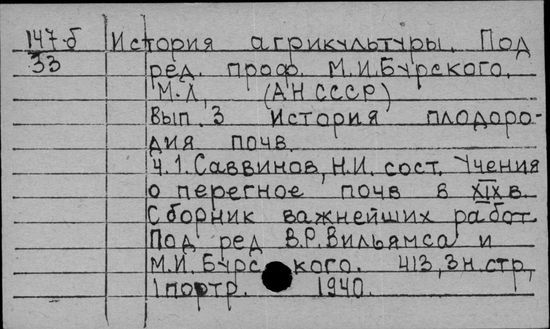 147-б История агрикультуры. Под
33 ред. проф. М.И.Бурского.
М-Л, (АН СССР)
Вып. 3 История плодоро-
дия почв.
ч.1. Саввинов, Н.И. сост. Учения
о перегное почв в XIX в.
Сборник важнейших работ
Под ред В.Р.Вильямса и
М.И.Бурского. 413, 3н.стр,
1 портр. 1940.